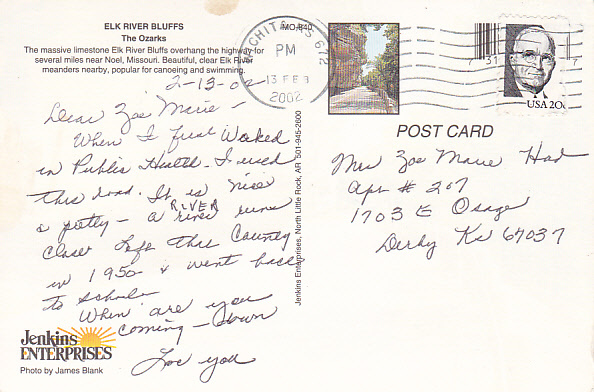 ELK RIVER BLUFFS
The Ozarks
MO-840
The massive limestone Elk River Bluffs overhang the highway for
several miles near Noel, Missouri. Beautiful, clear Elk River
meanders nearby, popular for canoeing and swimming.
2-13-02
Dear Zoe Marie -
When I first Worked
in Public Health - I used
this road. It is nice
& pretty - a RIVER river runs
close. Left this County
in 1950 & went back
to School.
When are you
coming - down
Love you
Jenkins
ENTERPRISES
Photo by James Blank
Jenkins Enterprises, North Little Rock, AR 501-945-2600
PM
13 FEB
2002
USA 20c
POST CARD
Mrs Zoe Marie Had
Apt # 207
1703 E Osage
Derby Ks 67037